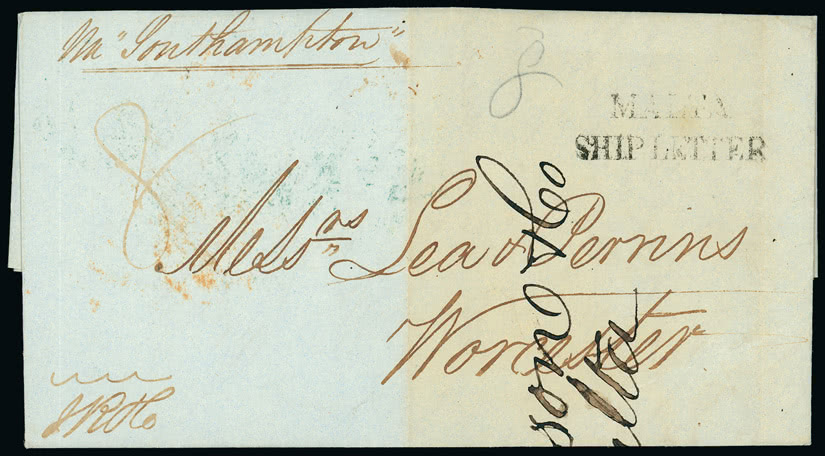 Via "Southampton"
8
8
MALTA
SHIP LETTER
Messrs Lea & Perrins
Worcester
son & Co
lta